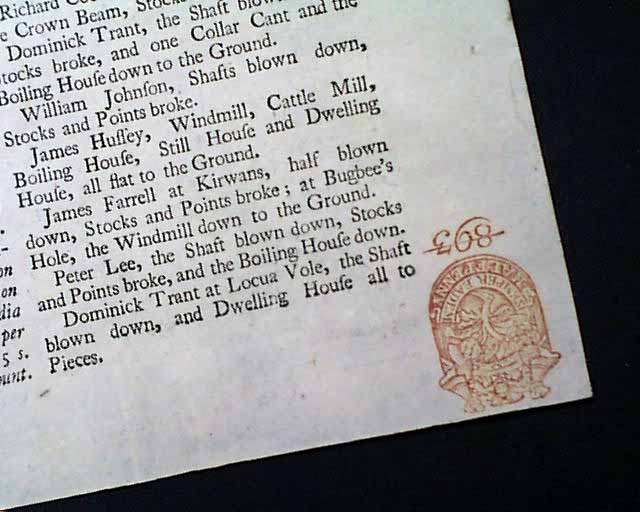 Richard
Crown Beam,
Dominick Trant, the Shaft
broke, and one Collar Cant and the
Boiling Houſe down to the Ground.
William Johnſon, Shafts blown down,
Stocks and Points broke.
James Huſſey, Windmill, Cattle Mill,
Boiling Houſe, Still Houſe and Dwelling
Houſe, all flat to the Ground.
James Farrell at Kirwans, half blown
down, Stocks and Points broke; at Bugbee's
Hole, the Windmill down to the Ground.
Peter Lee, the Shaft blown down, Stocks
and Points broke, and the Boiling Houſe down.
Dominick Trant at Locua Vole, the Shaft
blown down, and Dwelling Houſe all to
Pieces.
on
on
dia
per
5 s.
unt.